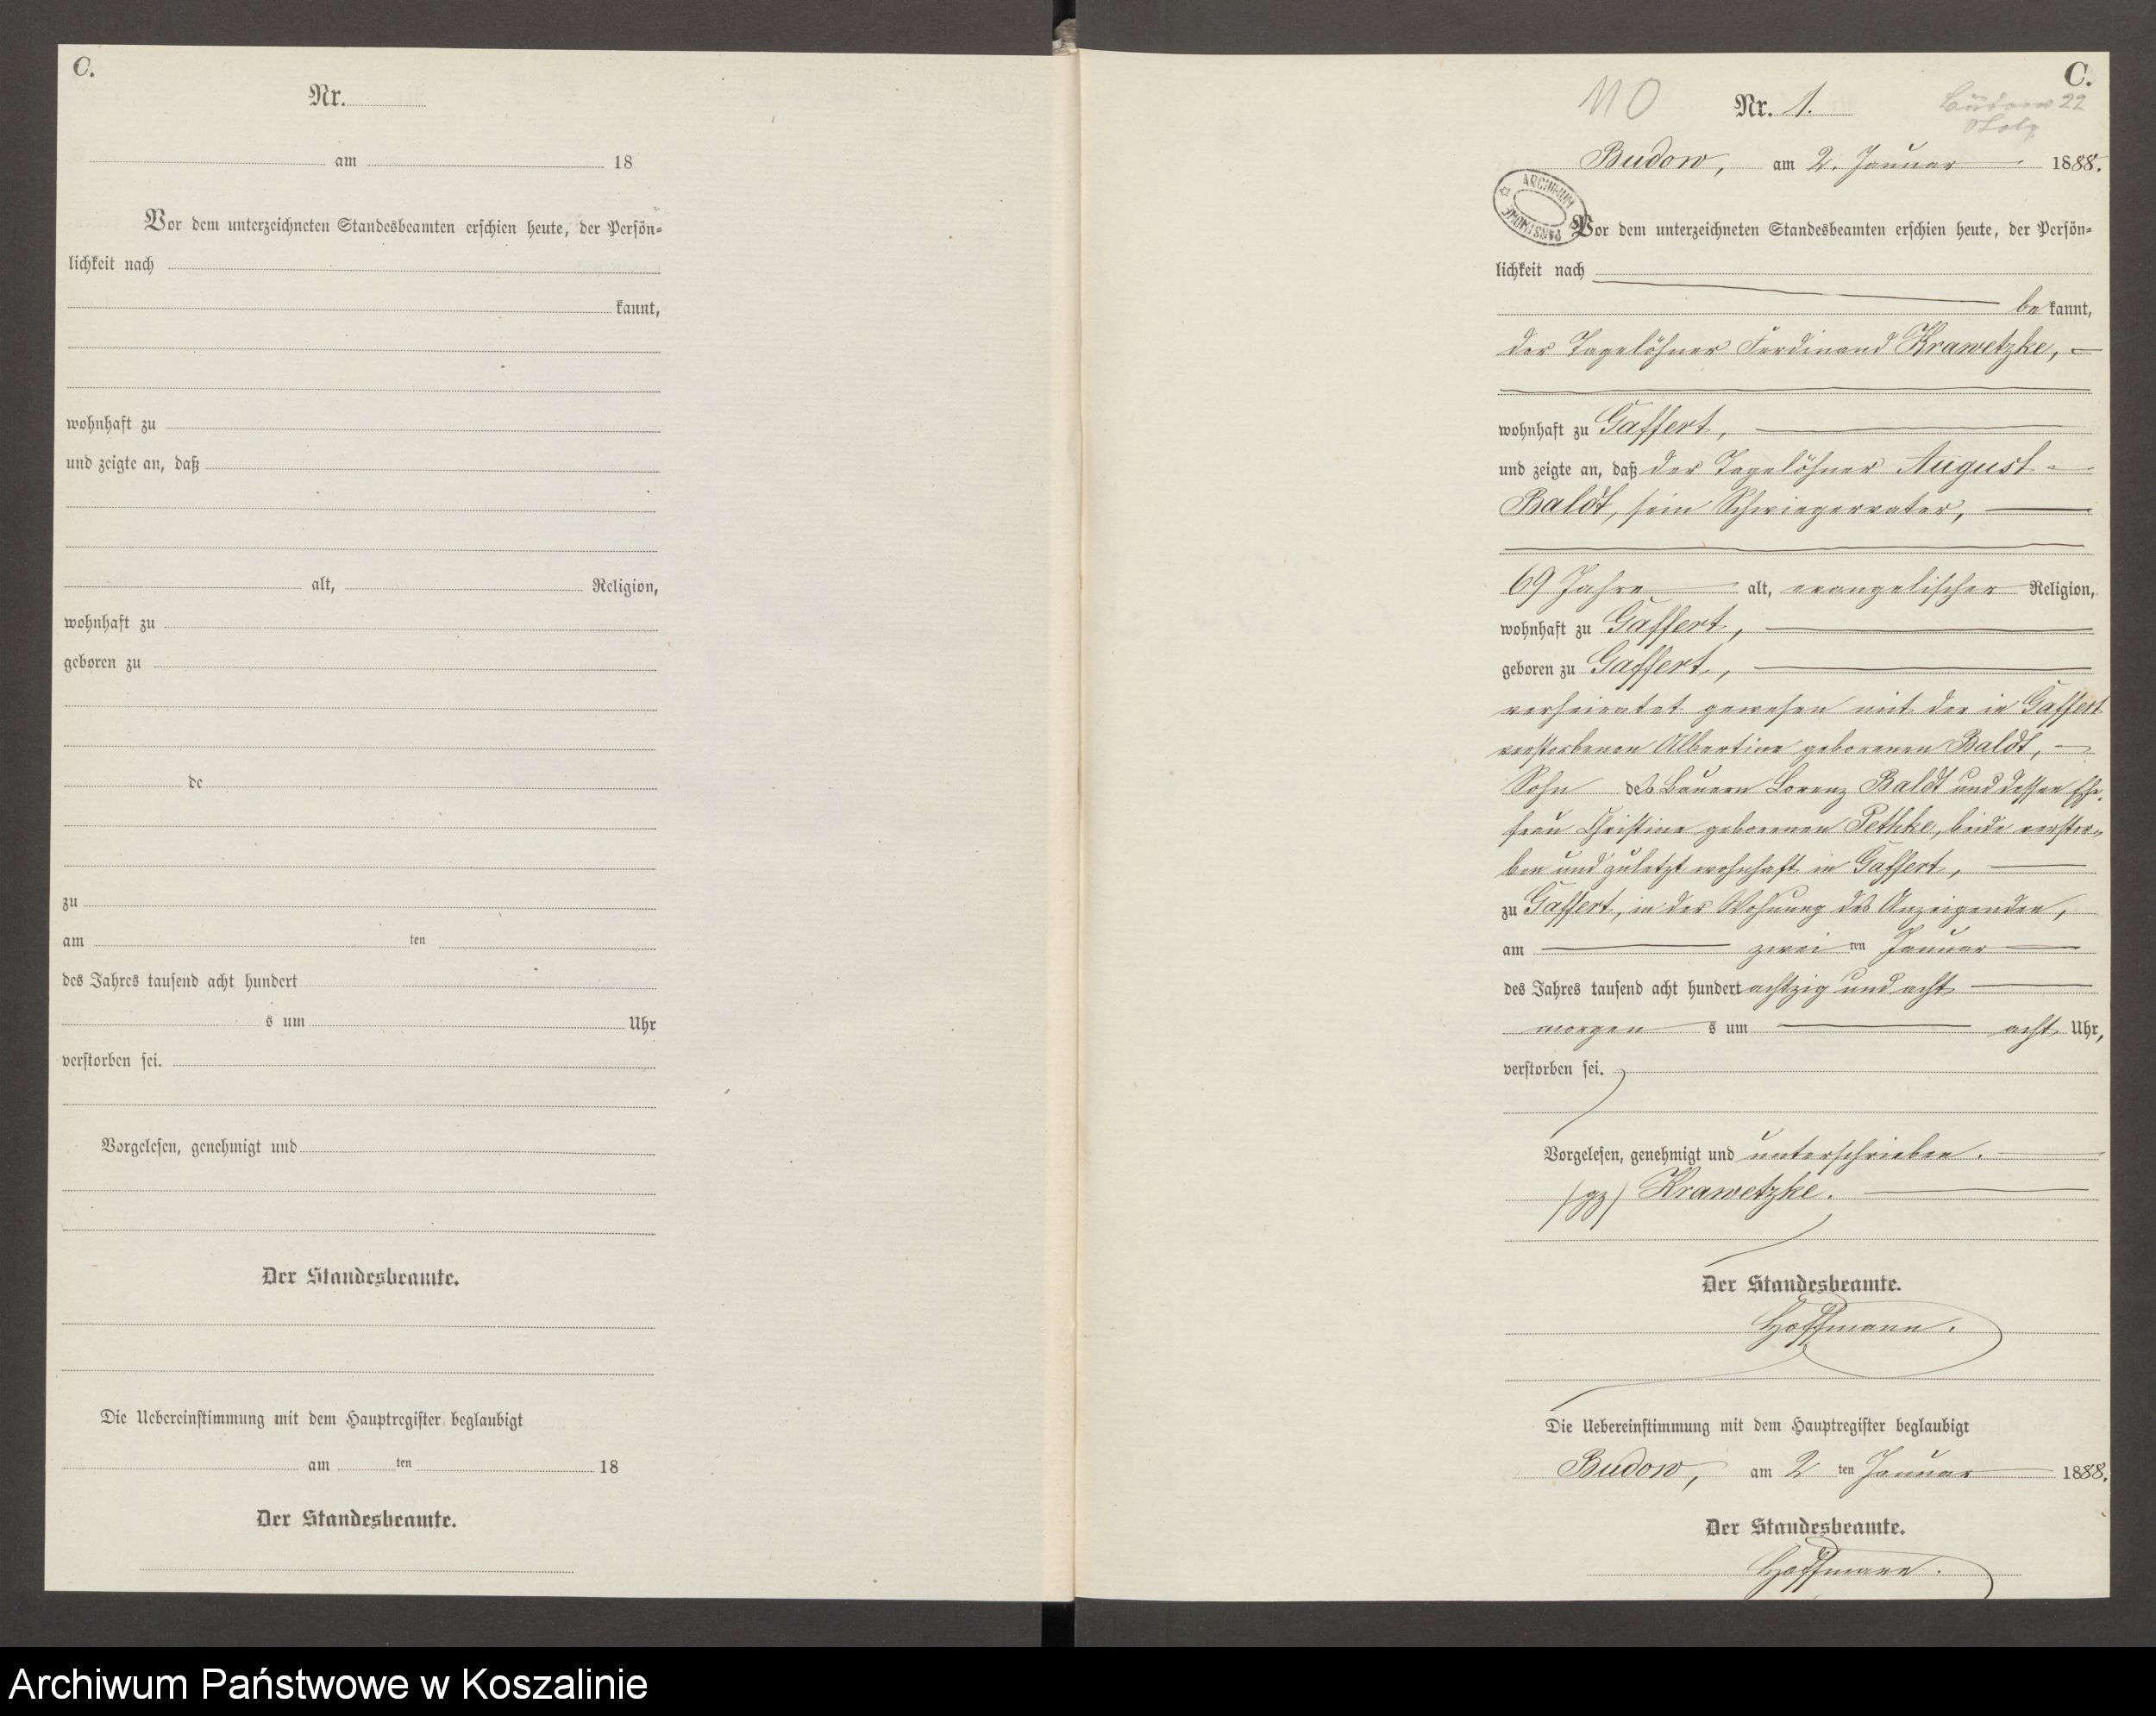 C.
Nr.
am 18
Vor dem unterzeichneten Standesbeamten erschien heute, der Persön-
lichkeit nach
kannt,
wohnhaft zu
und zeigte an, daß
alt, Religion,
wohnhaft zu
geboren zu
de
zu
am ten
des Jahres tausend acht hundert
s um Uhr
verstorben sei.
Vorgelesen, genehmigt und
Der Standesbeamte.
Die Uebereinstimmung mit dem Hauptregister beglaubigt
am ten 18
Der Standesbeamte.
C.
110
Nr. 1.
22
Budow, am 2. Januar 1888.
ARCHIWUM PAŃSTWOWE
Vor dem unterzeichneten Standesbeamten erschien heute, der Persön-
lichkeit nach
bekannt,
der Tagelöhner Ferdinand Krawetzke,
wohnhaft zu Gaffert,
und zeigte an, daß der Tagelöhner August
Baldt, sein Schwiegervater,
69 Jahre alt, evangelischer Religion,
wohnhaft zu Gaffert,
geboren zu Gaffert,
verheiratet gewesen mit der in Gaffert
verstorbenen Albertine geborenen Baldt,
Sohn des Bauern Lorenz Baldt und dessen Ehe-
frau Christine geborenen Pethke, beide verstor-
ben und zuletzt wohnhaft in Gaffert,
zu Gaffert, in der Wohnung des Anzeigenden,
am zwei ten Januar
des Jahres tausend acht hundert achtzig und acht
morgen s um acht Uhr,
verstorben sei.
Vorgelesen, genehmigt und unterschrieben.
(gz) Krawetzke.
Der Standesbeamte.
Hoffmann.
Die Uebereinstimmung mit dem Hauptregister beglaubigt
Budow, am 2 ten Januar 1888.
Der Standesbeamte.
Hoffmann.
Archiwum Państwowe w Koszalinie